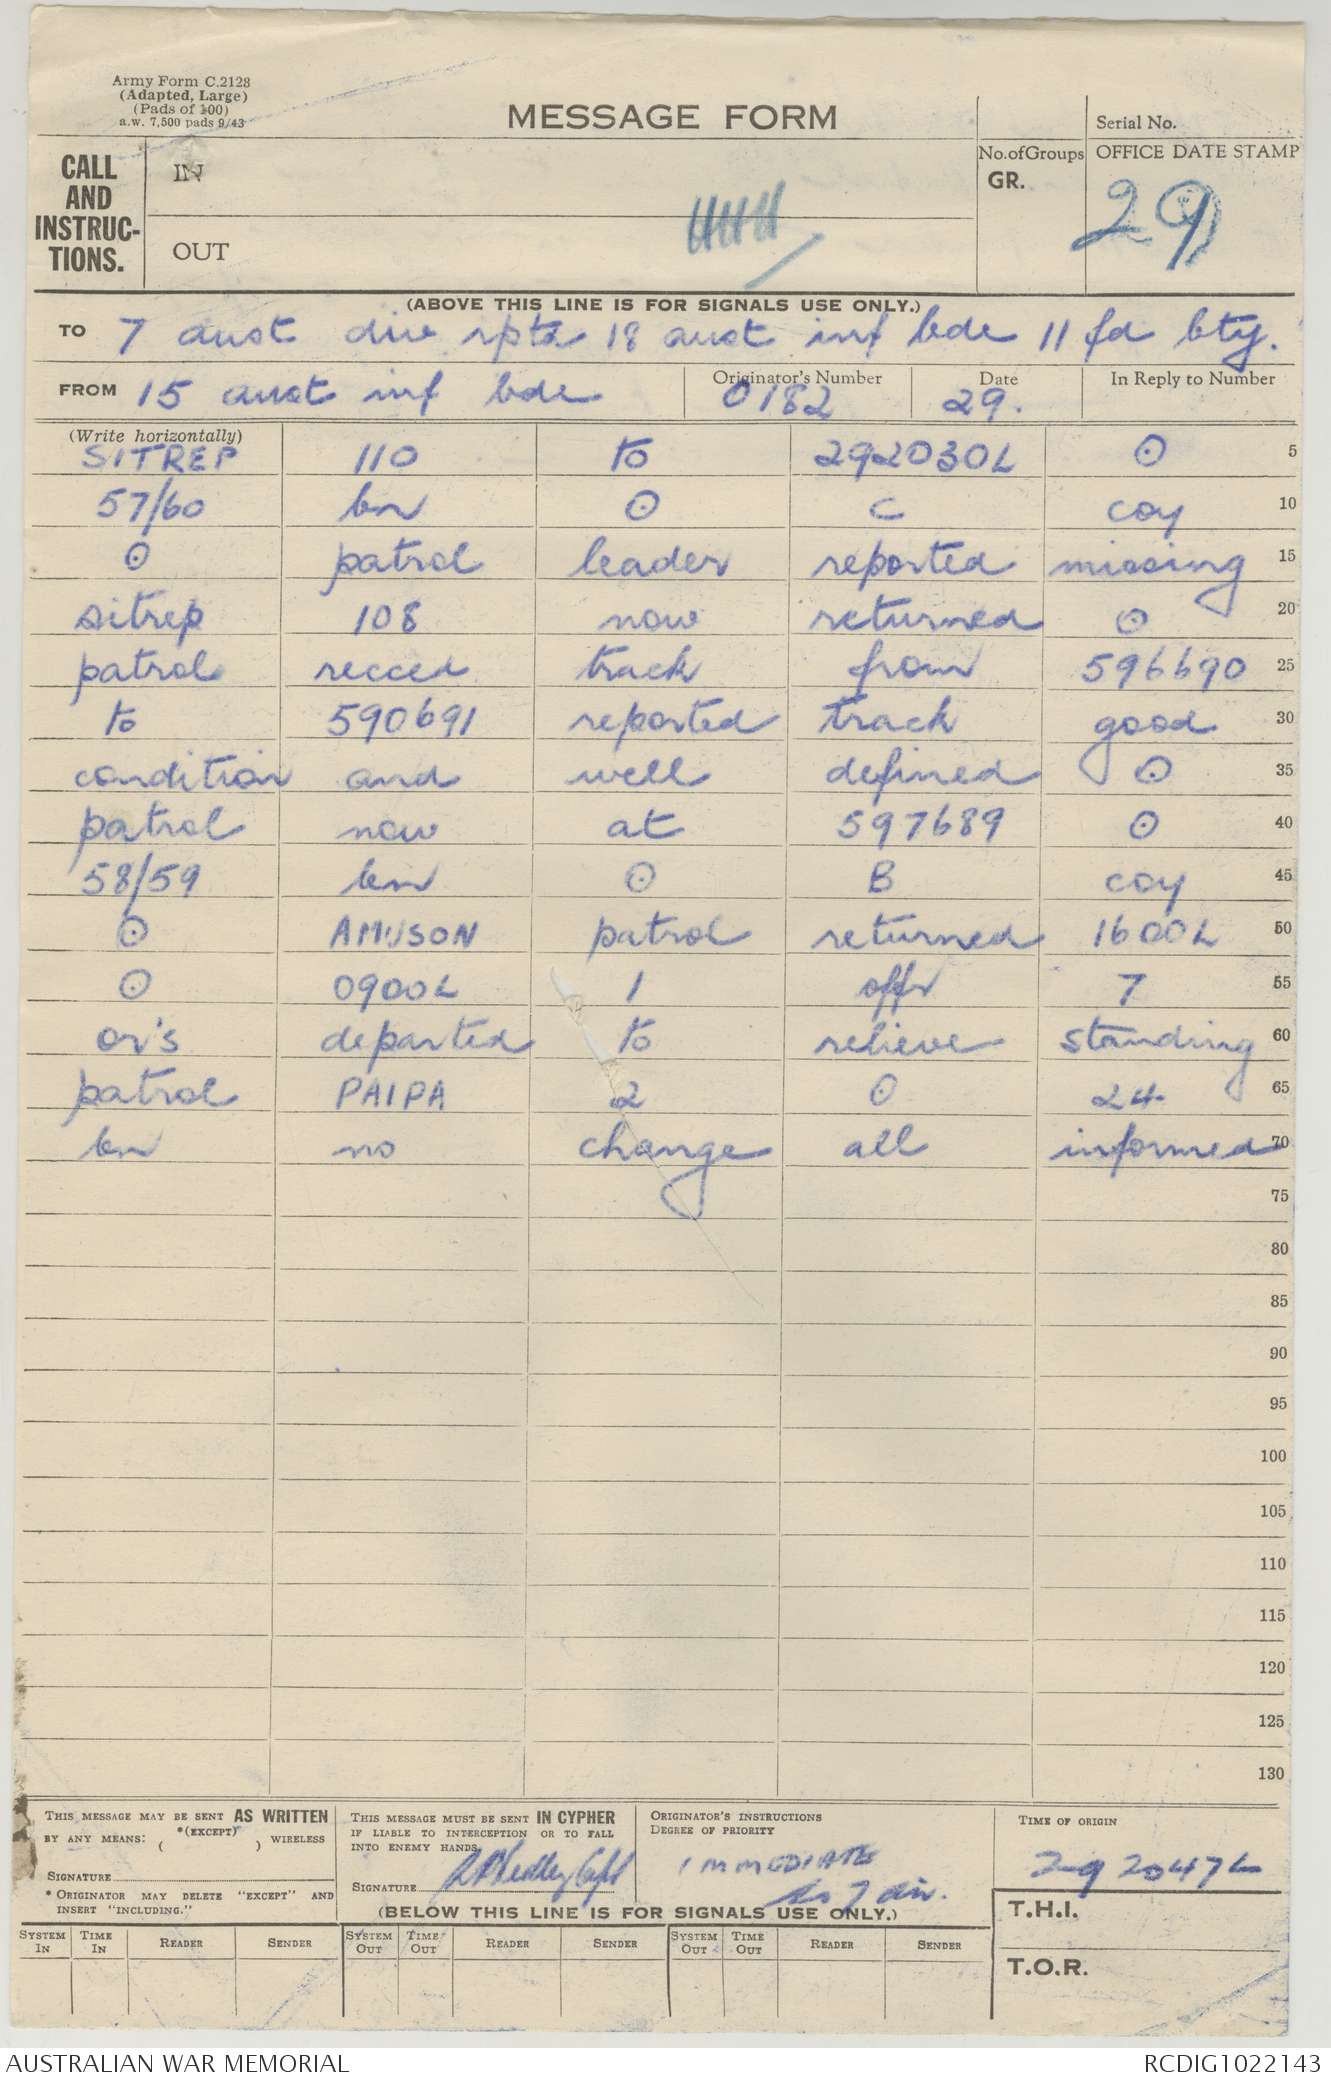 Army Form C.2128
(Adapted, Large)
(Pads of 100)
a.w. 7,500 pads 9/43
MESSAGE FORM
Serial No.
CALL AND INSTRUC-TIONS.
IN
No. of Groups
GR.
OFFICE DATE STAMP
29
OUT
(ABOVE THIS LINE IS FOR SIGNALS USE ONLY.)
TO 7 aust div rptd 18 aust inf bde 11 fd bty.
FROM 15 aust inf bde
Originator's Number 0182
Date 29.
In Reply to Number
(Write horizontally)
SITREP 110 to 292030L ⊙ 5
57/60 bn ⊙ C coy 10
⊙ patrol leader reported missing 15
sitrep 108 now returned ⊙ 20
patrol recced track from 596690 25
to 590691 reported track good 30
condition and well defined ⊙ 35
patrol now at 597689 ⊙ 40
58/59 bn ⊙ B coy 45
⊙ AMUSON patrol returned 1600L 50
⊙ 0900L 1 offr 7 55
or's departed to relieve standing 60
patrol PAIPA 2 ⊙ 24 65
bn no change all informed 70
75
80
85
90
95
100
105
110
115
120
125
130
THIS MESSAGE MAY BE SENT AS WRITTEN
BY ANY MEANS: *(EXCEPT) ( ) WIRELESS
SIGNATURE
* ORIGINATOR MAY DELETE "EXCEPT" AND
INSERT "INCLUDING."
THIS MESSAGE MUST BE SENT IN CYPHER
IF LIABLE TO INTERCEPTION OR TO FALL
INTO ENEMY HANDS.
SIGNATURE Capt
ORIGINATOR'S INSTRUCTIONS
DEGREE OF PRIORITY
IMMEDIATE
to 7 div.
TIME OF ORIGIN
292047L
(BELOW THIS LINE IS FOR SIGNALS USE ONLY.)
T.H.I.
T.O.R.
SYSTEM IN TIME IN READER SENDER SYSTEM OUT TIME OUT READER SENDER SYSTEM OUT TIME OUT READER SENDER
AUSTRALIAN WAR MEMORIAL
RCDIG1022143